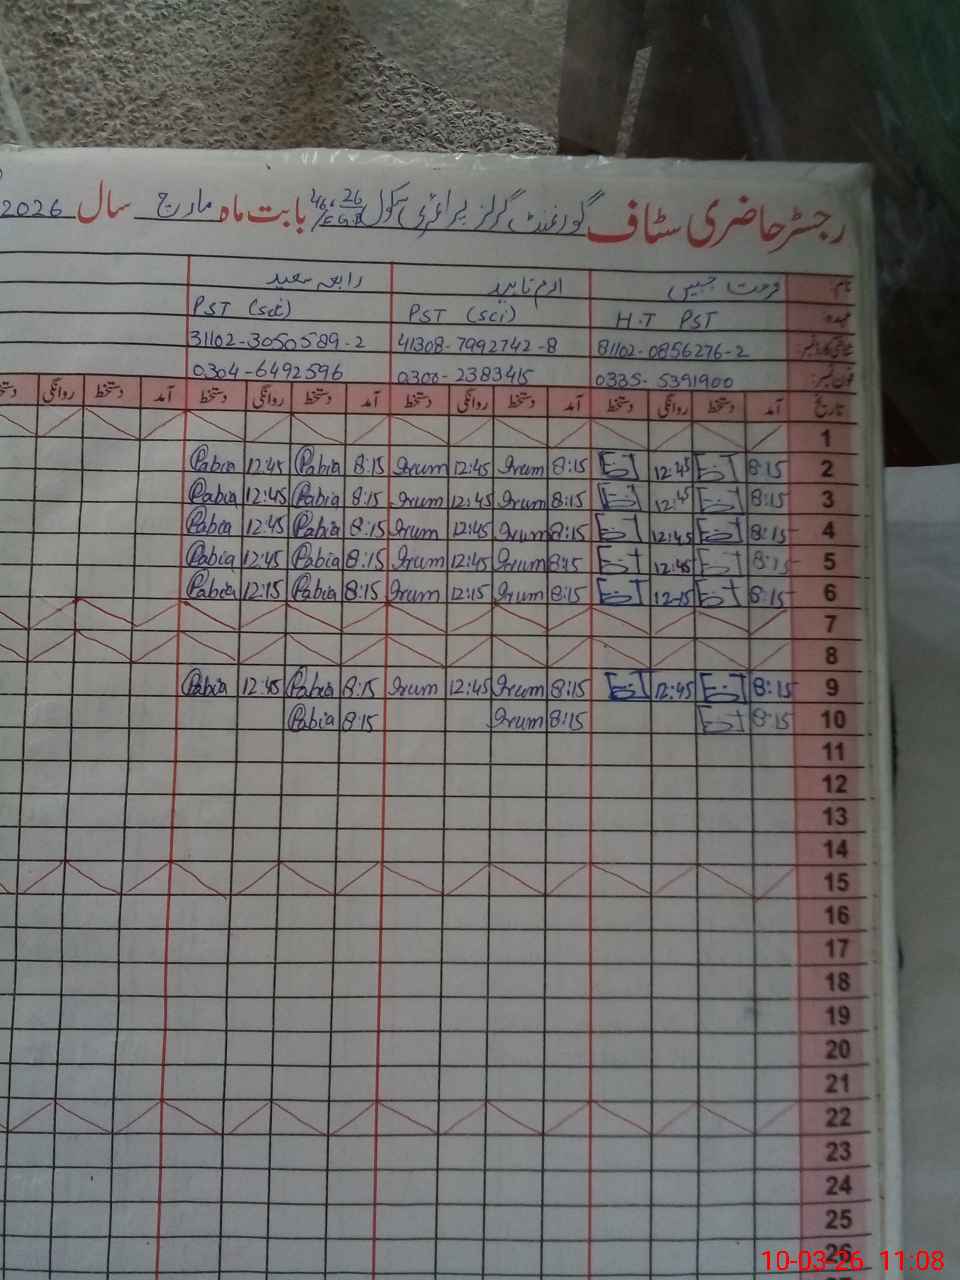 رجسٹر حاضری سٹاف گورنمنٹ گرلز پرائمری سکول بابت ماہ مارچ سال 2026
نام: فرحت جبیں ارم ناہید رابعہ سعید
عہدہ H.T PST PST (sci) PST (sci)
شناختی کارڈ نمبر: 81102-0856276-2 41308-7992742-8 31102-3050589-2
فون نمبر: 0335-5391900 0300-2383415 0304-6492596
تاریخ آمد دستخط روانگی دستخط آمد دستخط روانگی دستخط آمد دستخط روانگی دستخط آمد دستخط روانگی
1
2 8:15 12:45 8:15 Irum 12:45 Irum 8:15 Rabia 12:45 Rabia
3 8:15 12:45 8:15 Irum 12:45 Irum 8:15 Rabia 12:45 Rabia
4 8:15 12:45 8:15 Irum 12:45 Irum 8:15 Rabia 12:45 Rabia
5 8:15 12:45 8:15 Irum 12:45 Irum 8:15 Rabia 12:45 Rabia
6 8:15 12:15 8:15 Irum 12:15 Irum 8:15 Rabia 12:15 Rabia
7
8
9 8:15 12:45 8:15 Irum 12:45 Irum 8:15 Rabia 12:45 Rabia
10 8:15 8:15 Irum 8:15 Rabia
11
12
13
14
15
16
17
18
19
20
21
22
23
24
25
26
10-03-26 11:08